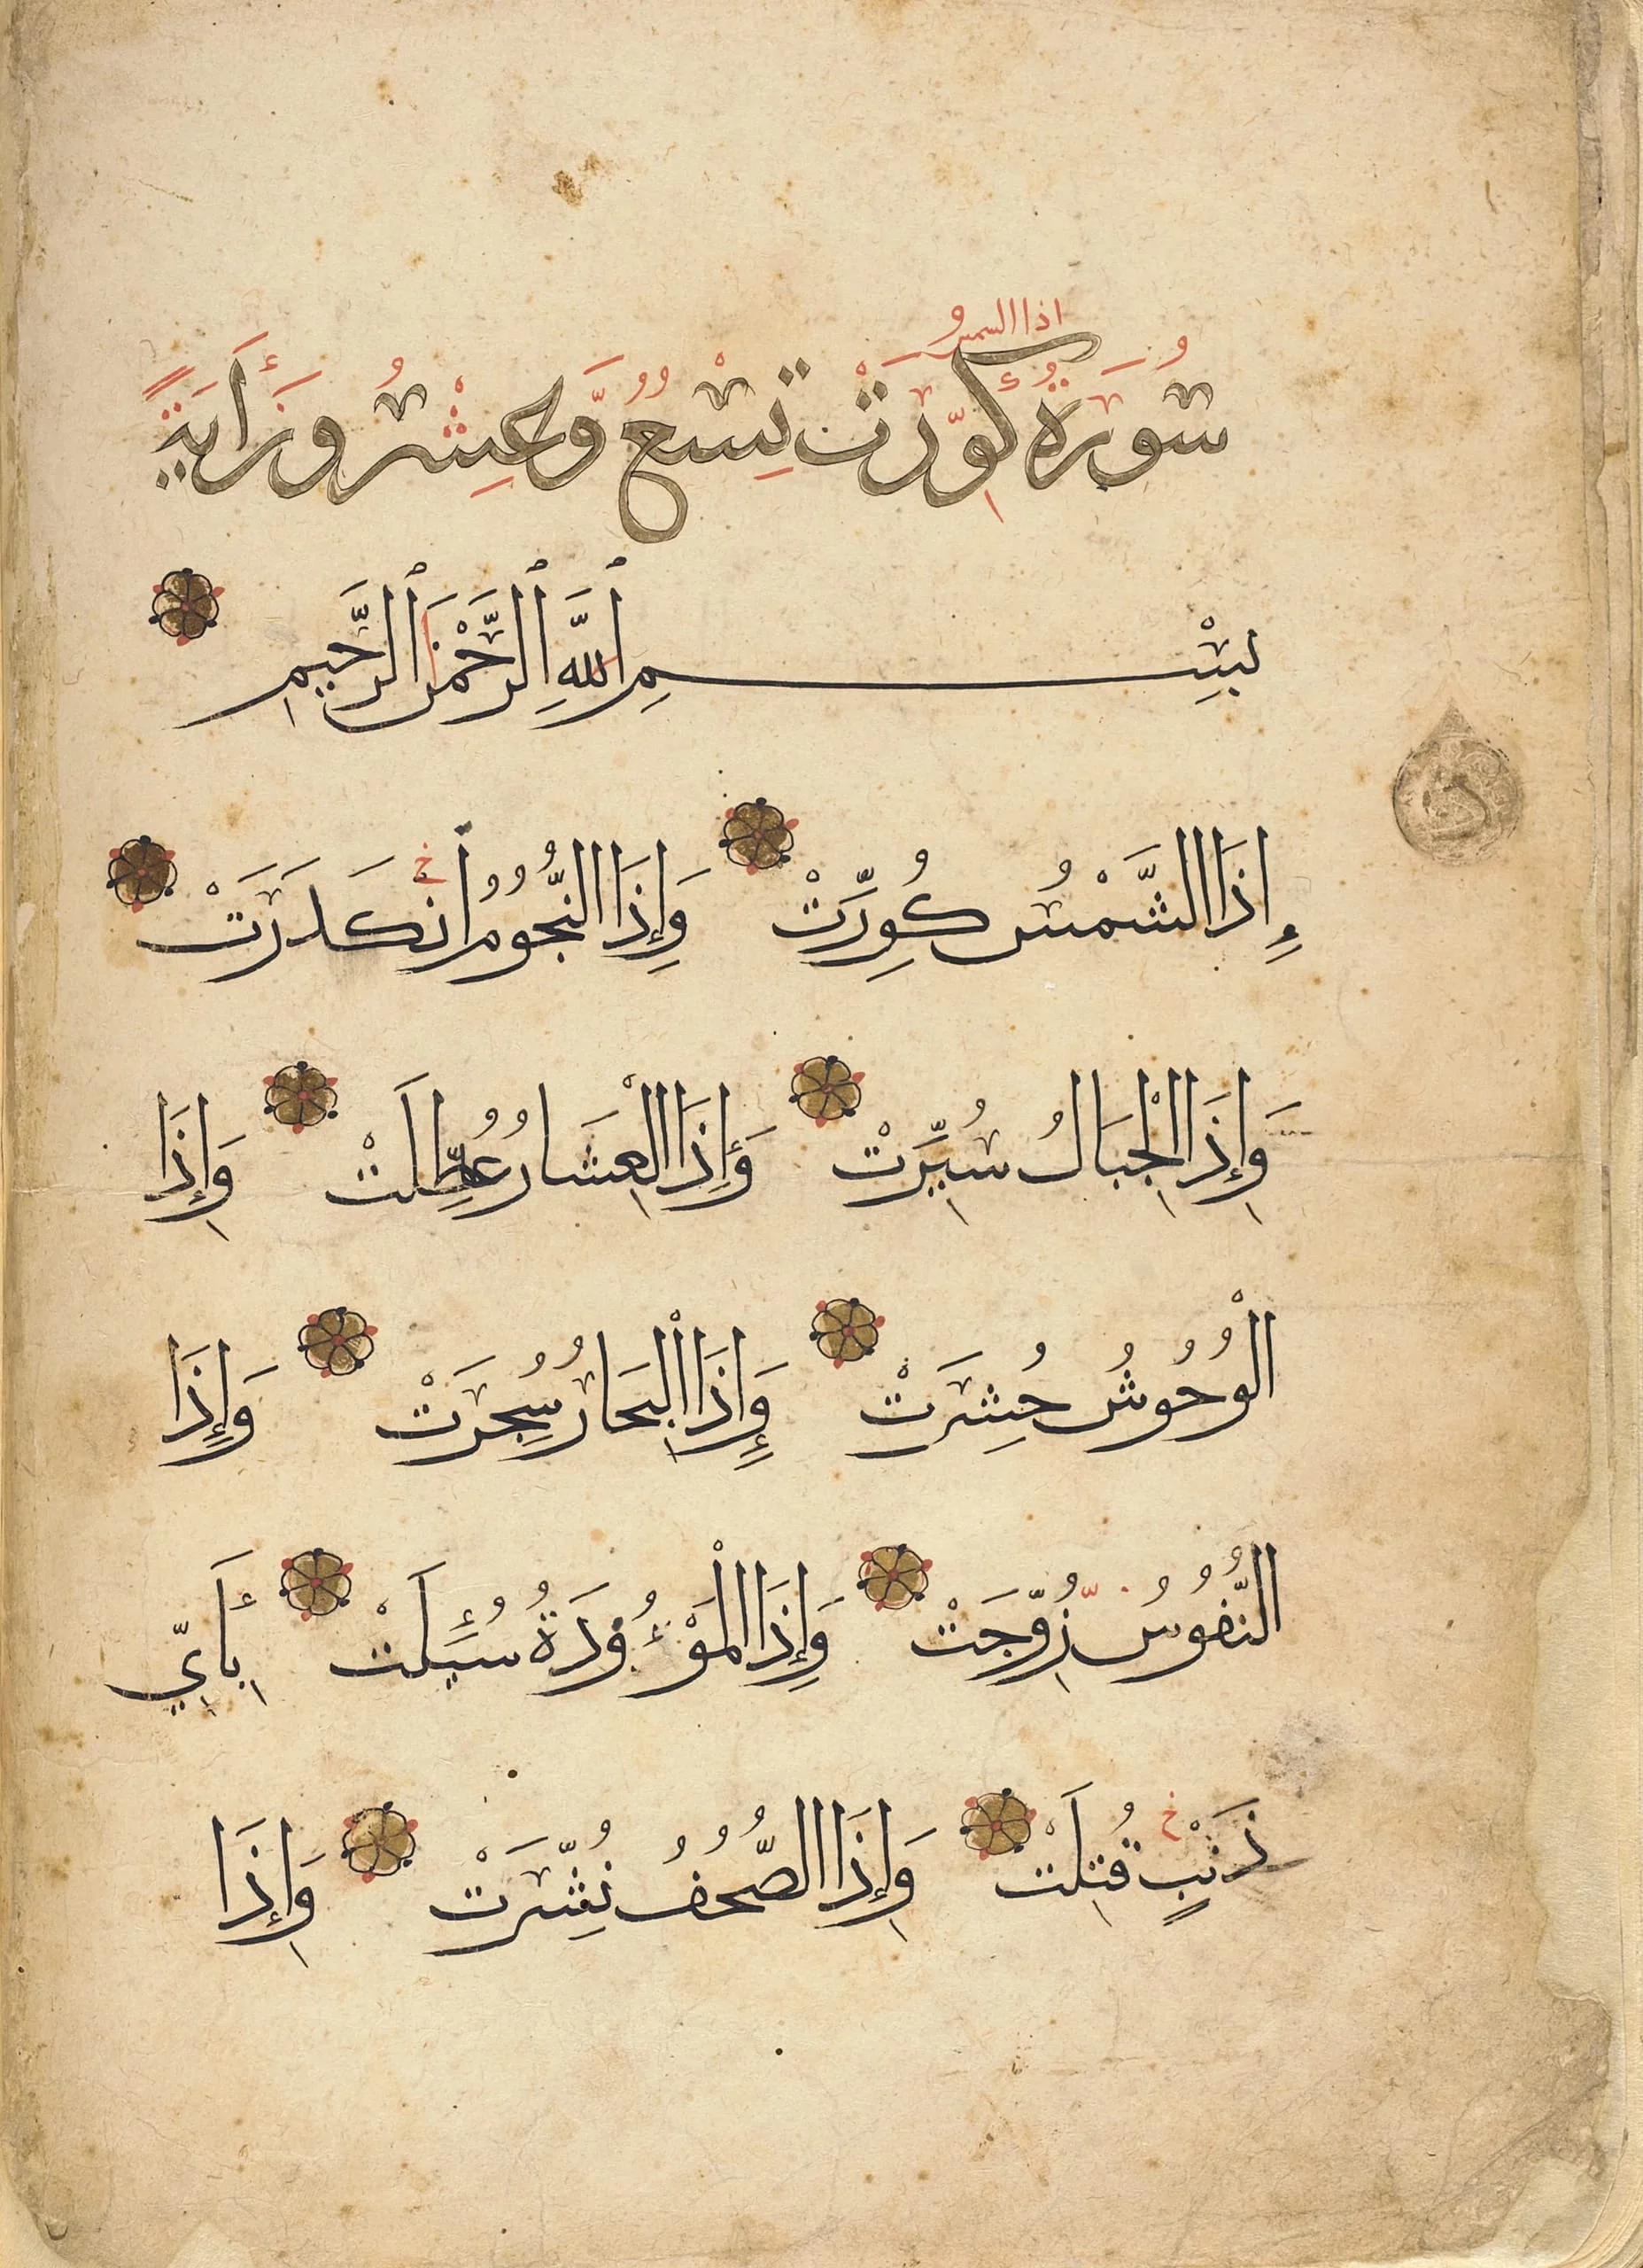 اذا الشمس
سُورَةُ كُوِّرَتْ تِسْعٌ وَّعِشْرُونَ أٰيَةً
بِسْمِ ٱللَّهِ ٱلرَّحْمٰنِ ٱلرَّحِيمِ
إِذَا الشَّمْسُ كُوِّرَتْ وَإِذَا النُّجُومُ انْكَدَرَتْ
وَإِذَا الْجِبَالُ سُيِّرَتْ وَإِذَا الْعِشَارُ عُطِّلَتْ وَإِذَا
الْوُحُوشُ حُشِرَتْ وَإِذَا الْبِحَارُ سُجِّرَتْ وَإِذَا
النُّفُوسُ زُوِّجَتْ وَإِذَا الْمَوْءُودَةُ سُئِلَتْ بِأَيِّ
ذَنْبٍ قُتِلَتْ وَإِذَا الصُّحُفُ نُشِّرَتْ وَإِذَا